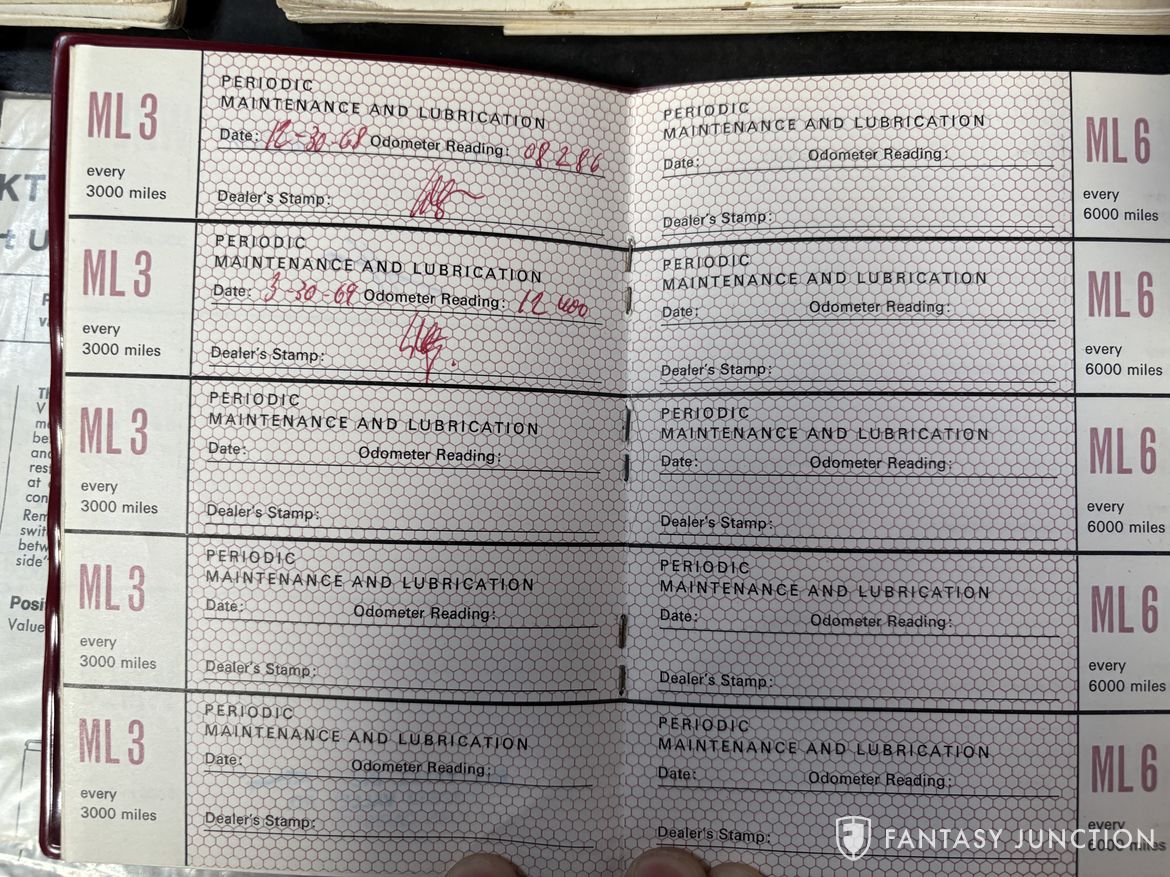 ML 3
every
3000 miles
PERIODIC
MAINTENANCE AND LUBRICATION
Date: 12-30-68 Odometer Reading: 08286
Dealer's Stamp:
ML 3
every
3000 miles
PERIODIC
MAINTENANCE AND LUBRICATION
Date: 3-30-69 Odometer Reading: 12 400
Dealer's Stamp:
ML 3
every
3000 miles
PERIODIC
MAINTENANCE AND LUBRICATION
Date: Odometer Reading:
Dealer's Stamp:
ML 3
every
3000 miles
PERIODIC
MAINTENANCE AND LUBRICATION
Date: Odometer Reading:
Dealer's Stamp:
ML 3
every
3000 miles
PERIODIC
MAINTENANCE AND LUBRICATION
Date: Odometer Reading:
Dealer's Stamp:
PERIODIC
MAINTENANCE AND LUBRICATION
Date: Odometer Reading:
Dealer's Stamp:
ML 6
every
6000 miles
PERIODIC
MAINTENANCE AND LUBRICATION
Date: Odometer Reading:
Dealer's Stamp:
ML 6
every
6000 miles
PERIODIC
MAINTENANCE AND LUBRICATION
Date: Odometer Reading:
Dealer's Stamp:
ML 6
every
6000 miles
PERIODIC
MAINTENANCE AND LUBRICATION
Date: Odometer Reading:
Dealer's Stamp:
ML 6
every
6000 miles
PERIODIC
MAINTENANCE AND LUBRICATION
Date: Odometer Reading:
Dealer's Stamp:
ML 6
every
6000 miles
FANTASY JUNCTION